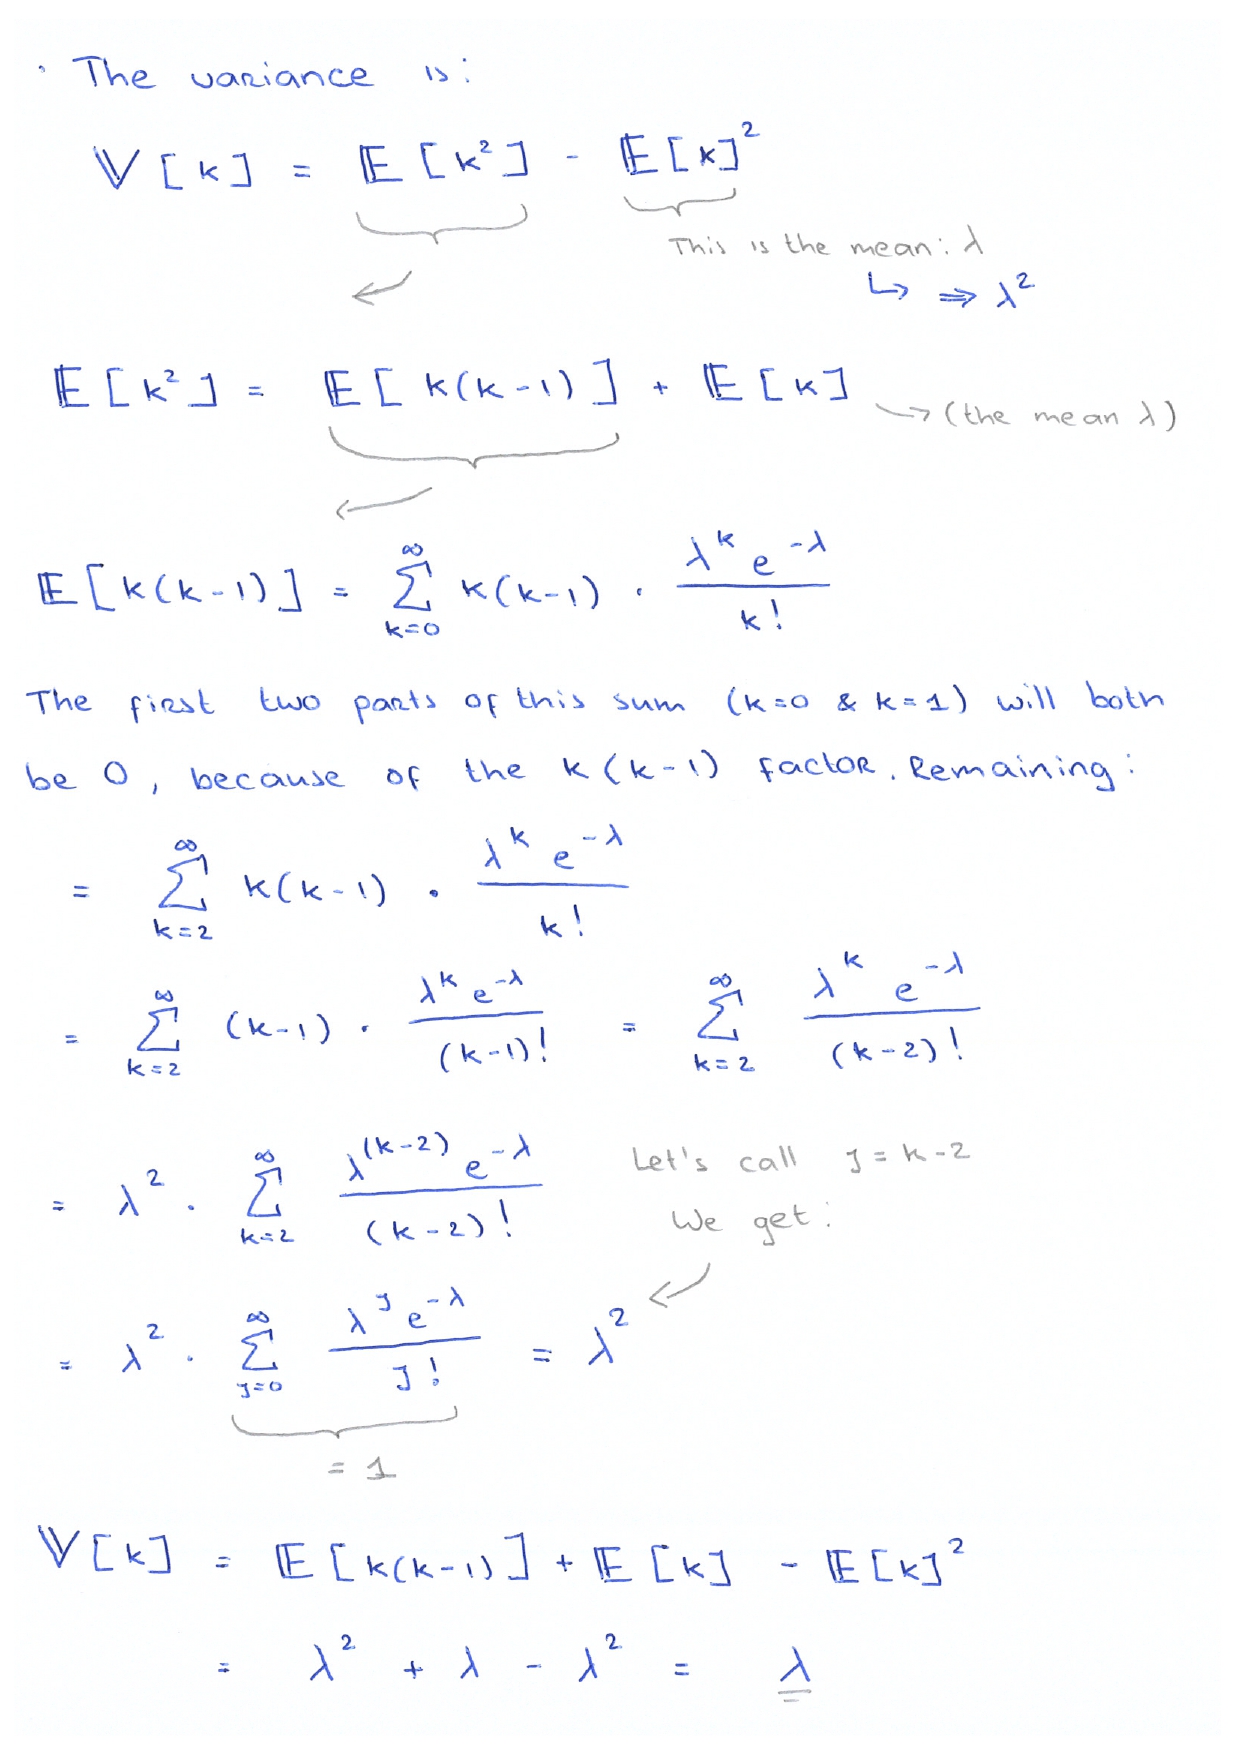 • The variance is:
𝕍[k] = 𝔼[k²] - 𝔼[k]²
This is the mean: λ
↳ ⇒ λ²
𝔼[k²] = 𝔼[k(k-1)] + 𝔼[k] → (the mean λ)
𝔼[k(k-1)] = ∑_{k=0}^{∞} k(k-1) · λ^k e^{-λ} / k!
The first two parts of this sum (k=0 & k=1) will both
be 0, because of the k(k-1) factor. Remaining:
= ∑_{k=2}^{∞} k(k-1) · λ^k e^{-λ} / k!
= ∑_{k=2}^{∞} (k-1) · λ^k e^{-λ} / (k-1)! = ∑_{k=2}^{∞} λ^k e^{-λ} / (k-2)!
= λ² · ∑_{k=2}^{∞} λ^{(k-2)} e^{-λ} / (k-2)! Let's call j = k-2
We get:
= λ² · ∑_{j=0}^{∞} λ^j e^{-λ} / j! = λ²
= 1
𝕍[k] = 𝔼[k(k-1)] + 𝔼[k] - 𝔼[k]²
= λ² + λ - λ² = λ